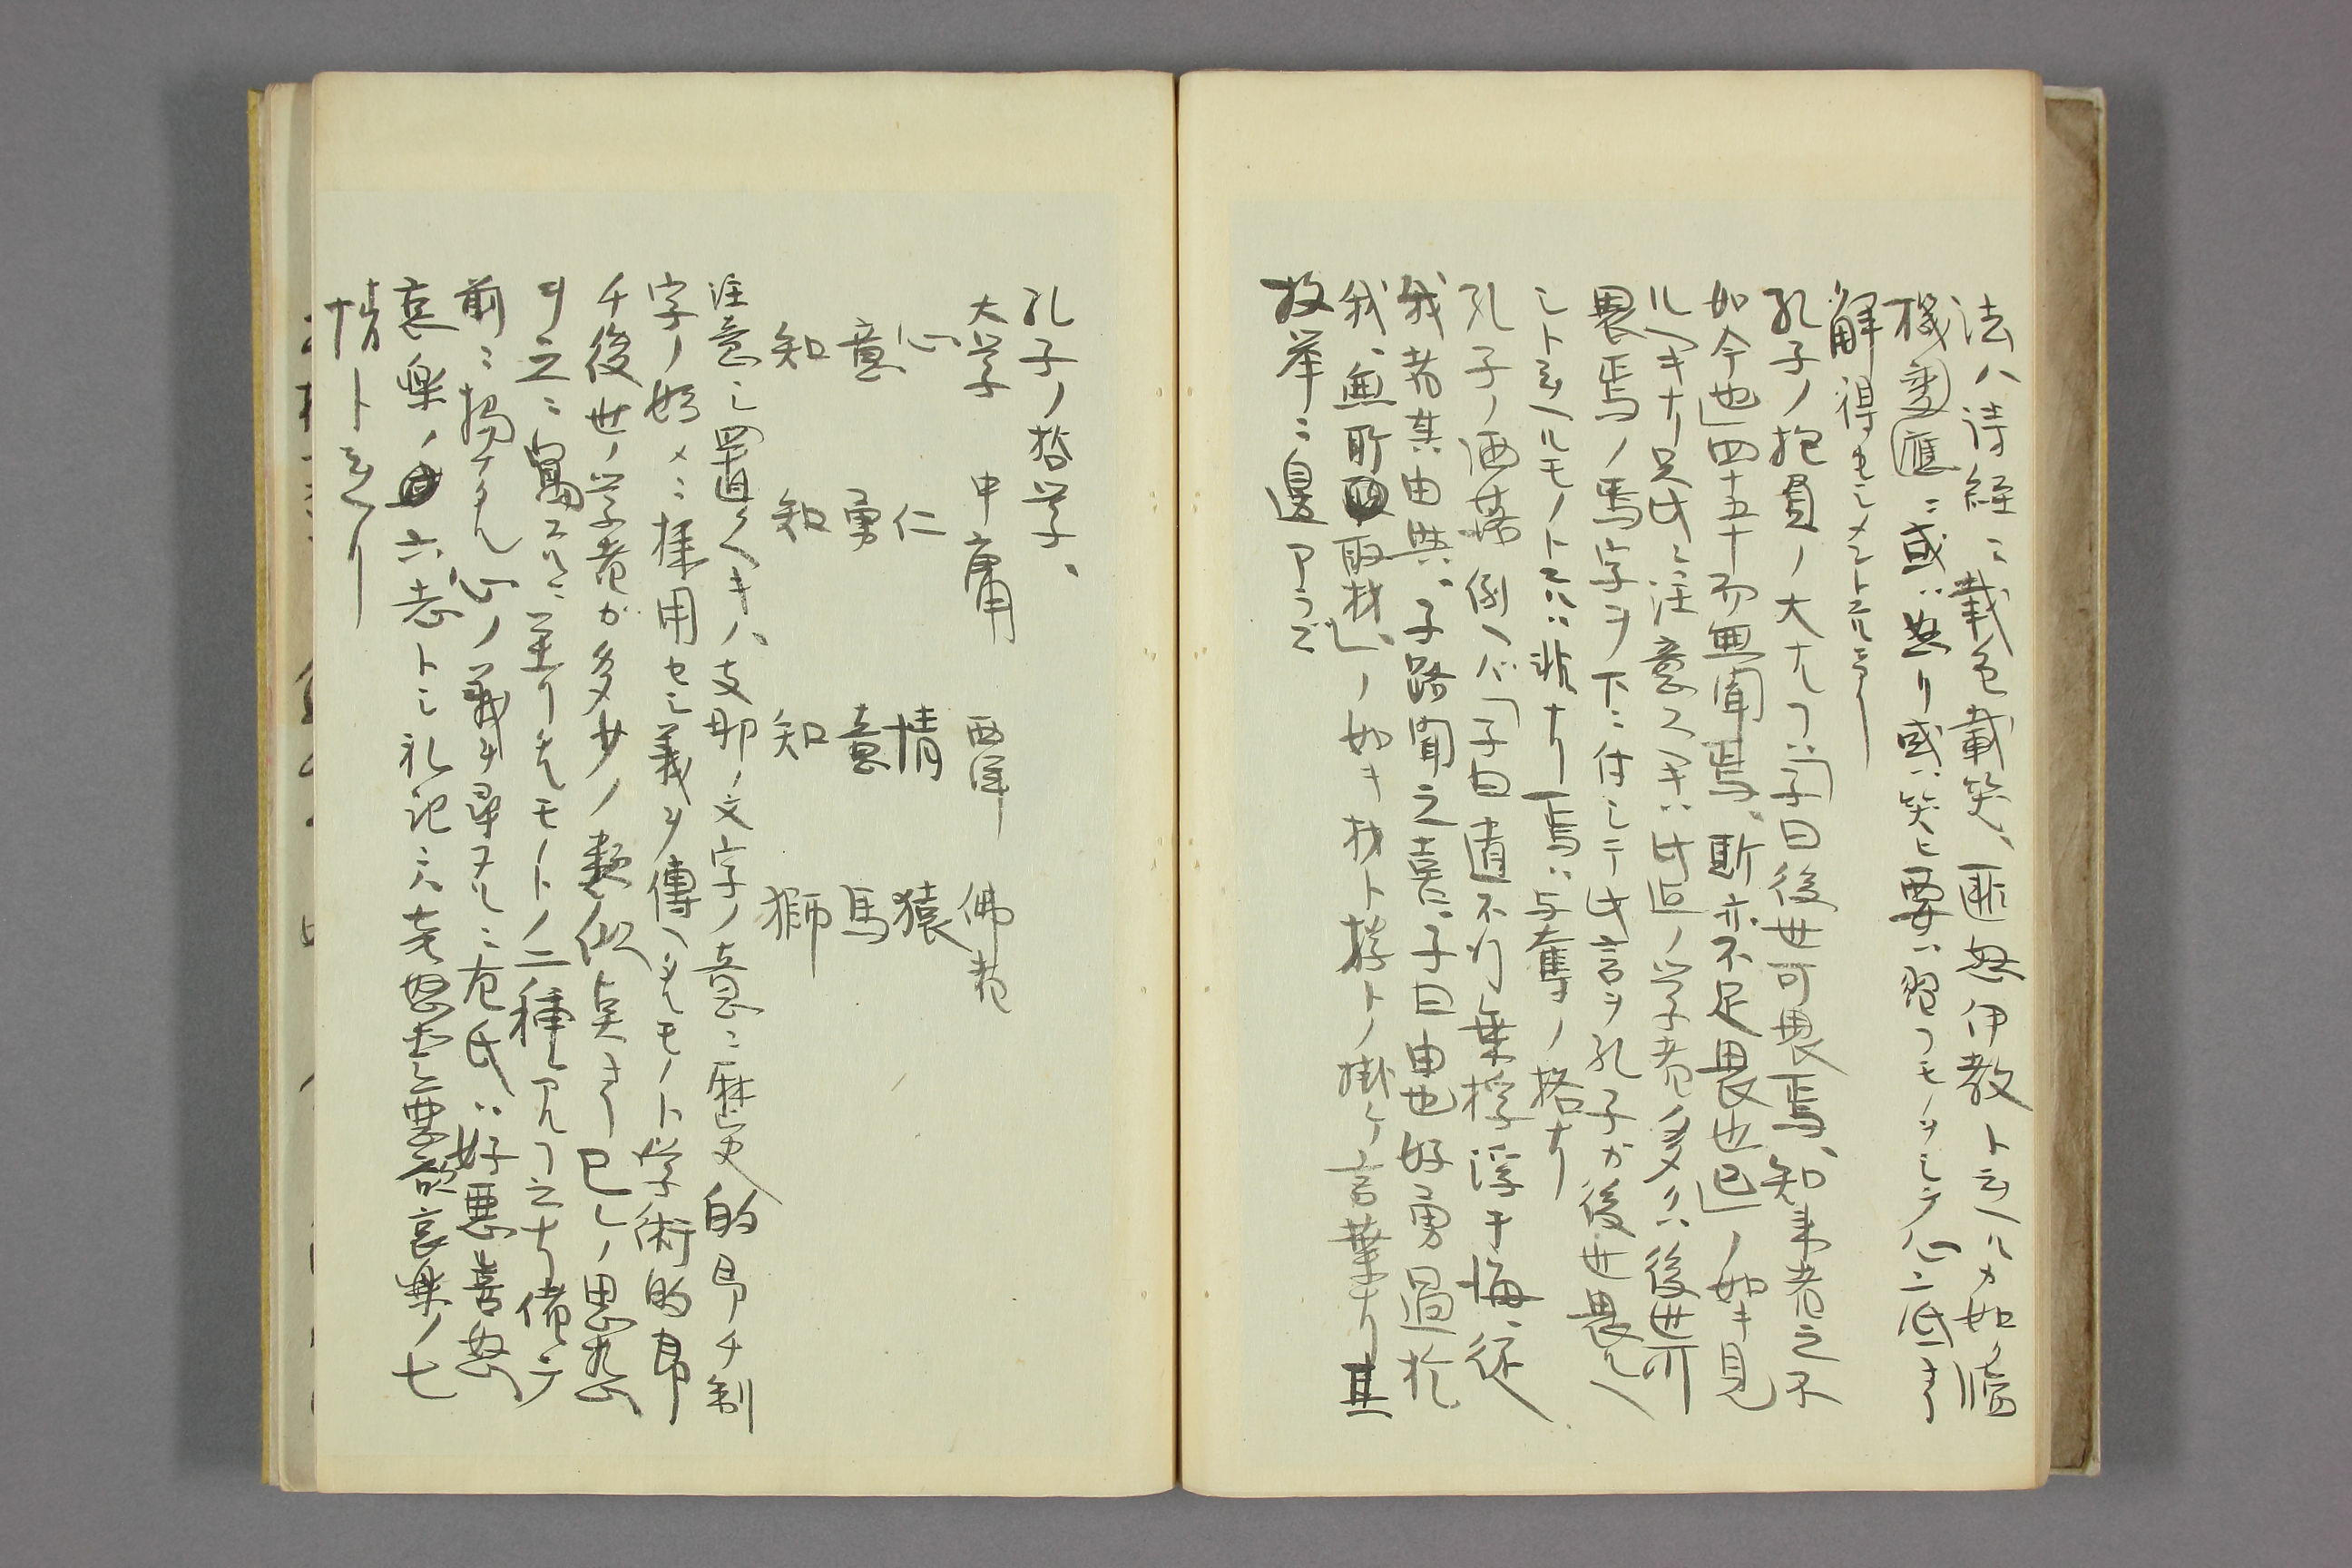 法ハ詩経ニ載色載笑、匪怒伊教ト云ヘルカ如ク臨
機變應ニ或ハ怒リ或ハ笑ヒ要ハ習フモノヲシテ心ニ底
解得セシメントスルニアリ
孔子ノ抱負ノ大ナルフハ「子曰後世可畏焉、知来者之不
如今也」四十五十而無聞焉、斯亦不足畏也已」ノ如キ見
ルヘキナリ只此ニ注意スヘキハ此迠ノ学者多クハ後世可
畏焉ノ焉字ヲ下ニ付シテ此言ヲ孔子カ後世畏ル
シト云ヘルモノトスルハ非ナリ焉ハ与奪ノ格ナリ
孔子ノ洒落例ヘバ「子曰道不行乗桴浮于海、従
我者其由與、子路聞之喜、子曰由也好勇過於
我、無所取材」ノ如キ材ト桴トノ掛ケ言葉ナリ其
枚挙ニ遑アラズ
孔子ノ哲学、
大学 中庸 西洋 佛老
心 仁 情 猿
意 勇 意 馬
知 知 知 獅
注意シ置クヘキハ、支那ノ文字ノ意ニ歴史的即チ制
字ノ始メニ採用セシ義ヲ傳ヘタルモノト学術的即
チ後世ノ学者が多少ノ類似点ヨリ己レノ思想
ヲ之ニ寓スルニ至リタルモノトノ二種アルフ之ナリ偖テ
前ニ揚ケタル心ノ義ヲ尋ヌルニ左氏ハ好悪喜怒
哀樂ノ六志トシ礼記ニハ喜怒愛悪欲哀樂ノ七
情ト云ヘリ